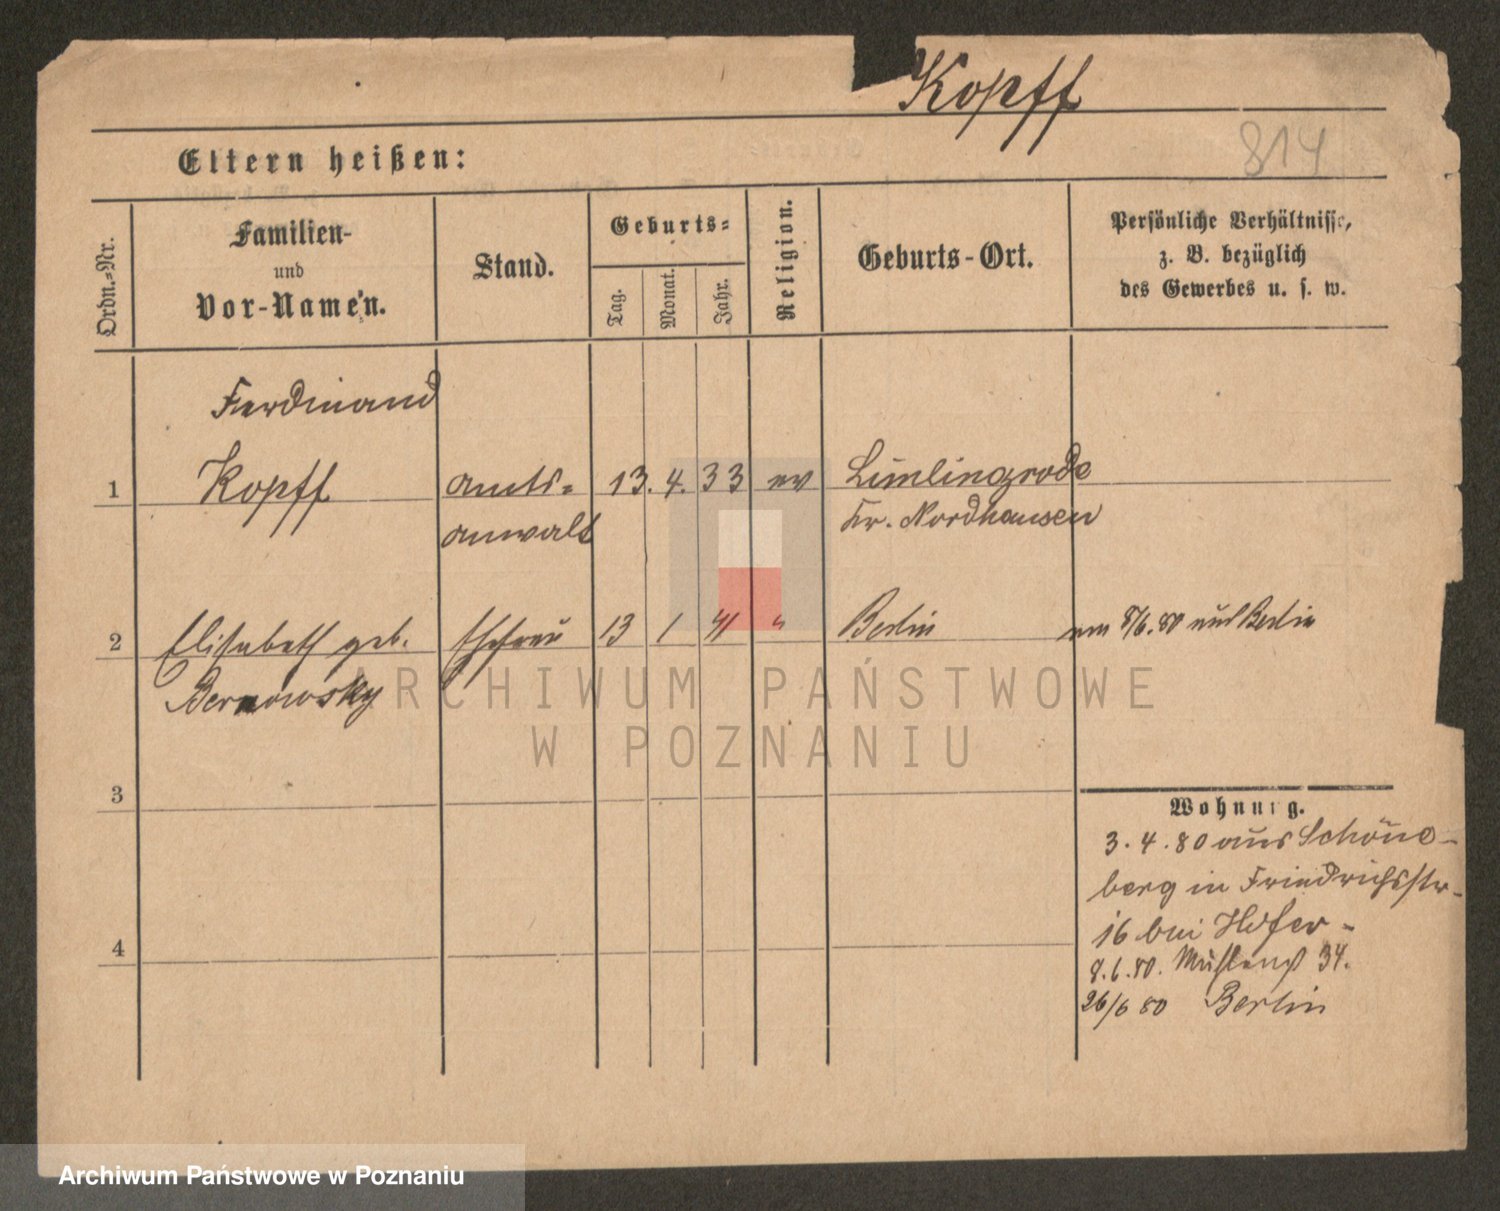 Kopff
814
Eltern heißen:
Ordn.=Nr.
Familien-
und
Vor-Namen.
Stand.
Geburts=
Tag.
Monat.
Jahr.
Religion.
Geburts-Ort.
Persönliche Verhältnisse,
z. B. bezüglich
des Gewerbes u. s. w.
Ferdinand
1 Kopff Amts= 13. 4. 33 ev Limlingrode
anwalt Kr. Nordhausen
2 Elisabeth geb. Ehefrau 13 1 41 " Berlin am 8/6.80 aus Berlin
Bernowsky
3
4
Wohnung.
3.4.80 aus Schöne-
berg in Friedrichsstr-
16 bei Höfer-
8.6.80. Mühlenst 34.
26/6 80 Berlin
ARCHIWUM PAŃSTWOWE
W POZNANIU
Archiwum Państwowe w Poznaniu